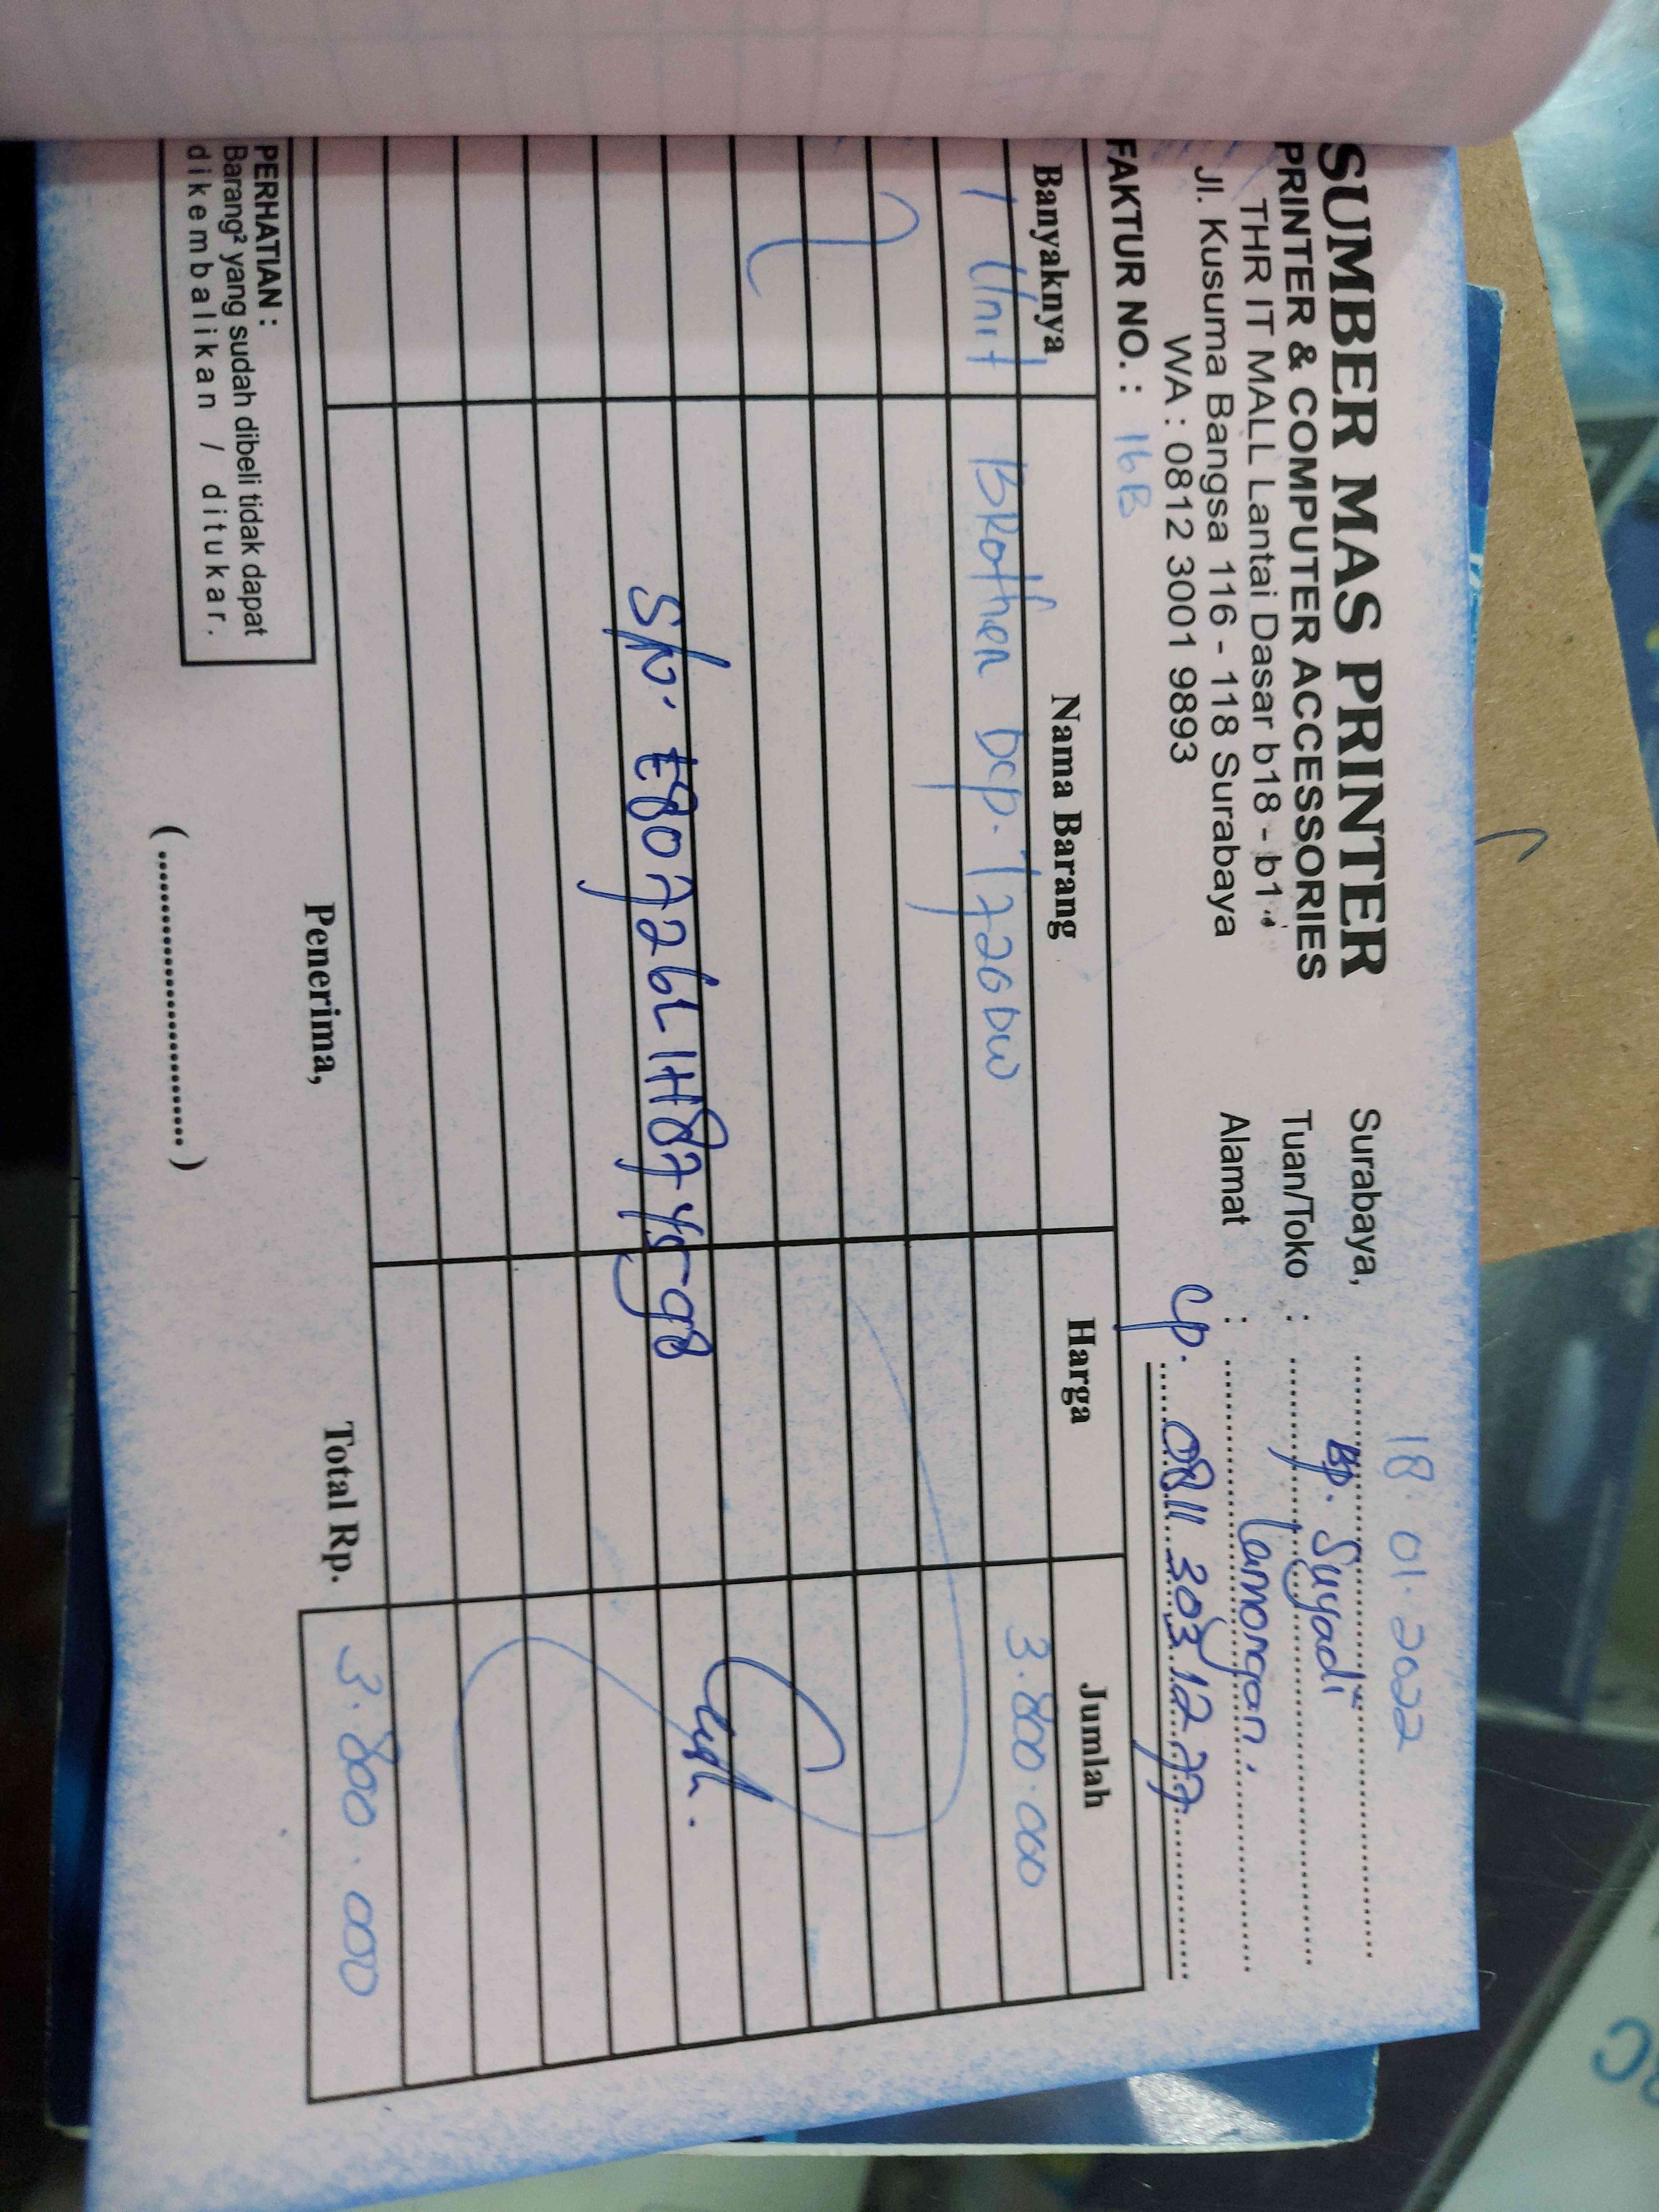 SUMBER MAS PRINTER
PRINTER & COMPUTER ACCESSORIES
THR IT MALL Lantai Dasar b18 - b1
Jl. Kusuma Bangsa 116 - 118 Surabaya
WA : 0812 3001 9893
FAKTUR NO. : 16B
Surabaya, 18. 01. 2022
Tuan/Toko : Bp. Suyadi
Alamat : Lamongan.
Cp. 0811 303 12 77
Banyaknya Nama Barang Harga Jumlah
1 Unit Brother Dcp. T720DW 3.800.000
Cash.
S/N. E80726L1H874598
PERHATIAN :
Barang² yang sudah dibeli tidak dapat
dikembalikan / ditukar.
Penerima,
(....................................)
Total Rp. 3.800.000